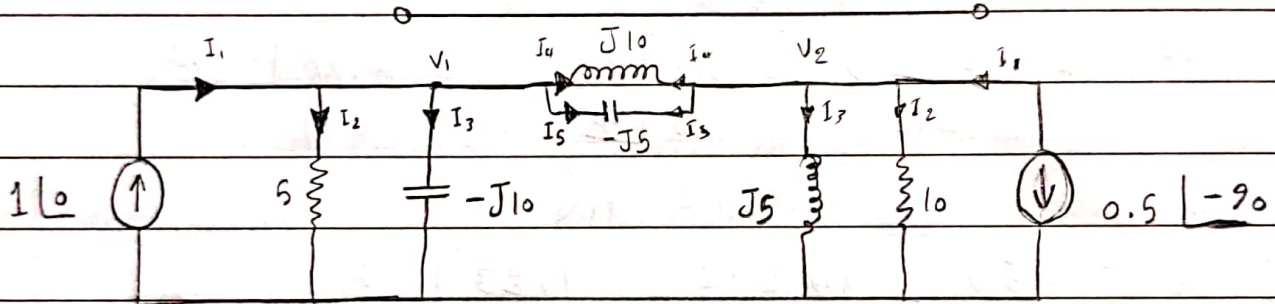 J10
I₁ V₁ I₄ I₄ V₂ I₁
I₂ I₃ I₅ -J5 I₅ I₃ I₂
1∠0 5 -J10 J5 10 0.5 ∠-90